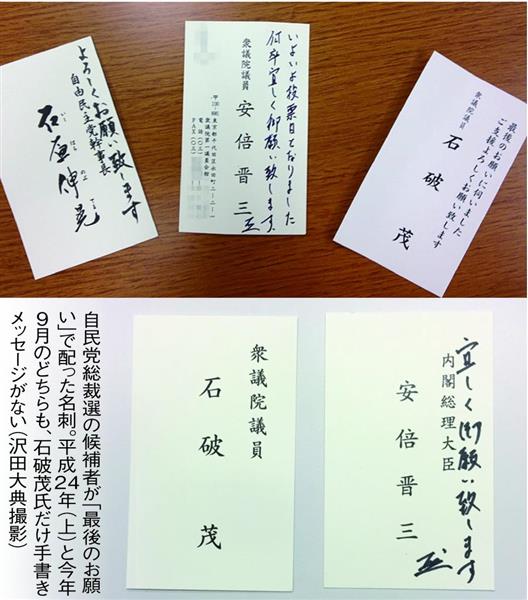 よろしくお願い致します
自由民主党幹事長
石原伸晃
いし
はら
のぶ
てる
いよいよ投票日となりました
何卒宜しく御願い致します。
衆議院議員
安倍晋三
東京都千代田区永田町二ー二ー一
衆議院第一議員会館
電話(〇三)
FAX(〇三)
最後のお願いに伺いました
ご支援よろしくお願い致します
衆議院議員
石破茂
宜しく御願い致します
内閣総理大臣
安倍晋三
衆議院議員
石破茂
自民党総裁選の候補者が「最後のお願
い」で配った名刺。平成24年(上)と今年
9月のどちらも、石破茂氏だけ手書き
メッセージがない(沢田大典撮影)